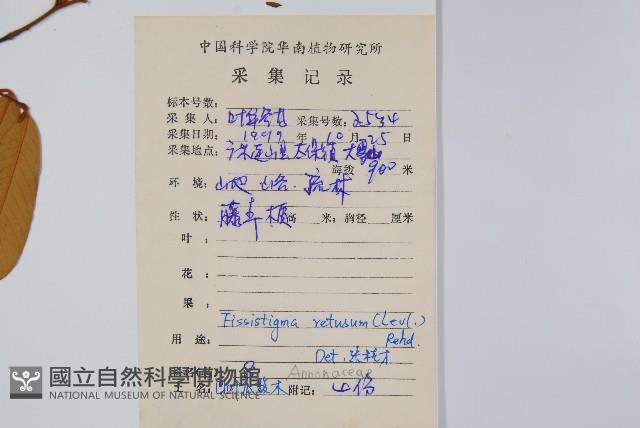 中国科学院华南植物研究所
采集记录
标本号数:
采集人: 叶华谷 采集号数: 2534
采集日期: 1999 年 10 月 25 日
采集地点: 连山县太保镇大
海拔 900 米
环境: 山地 山谷.疏林
性状: 藤本 高 米; 胸径 厘米
叶:
花:
果:
Fissistigma retusum (Levl.)
用途: Rehd.
Det.
Annonaceae
土名: 木 附记:
國立自然科學博物館
NATIONAL MUSEUM OF NATURAL SCIENCE